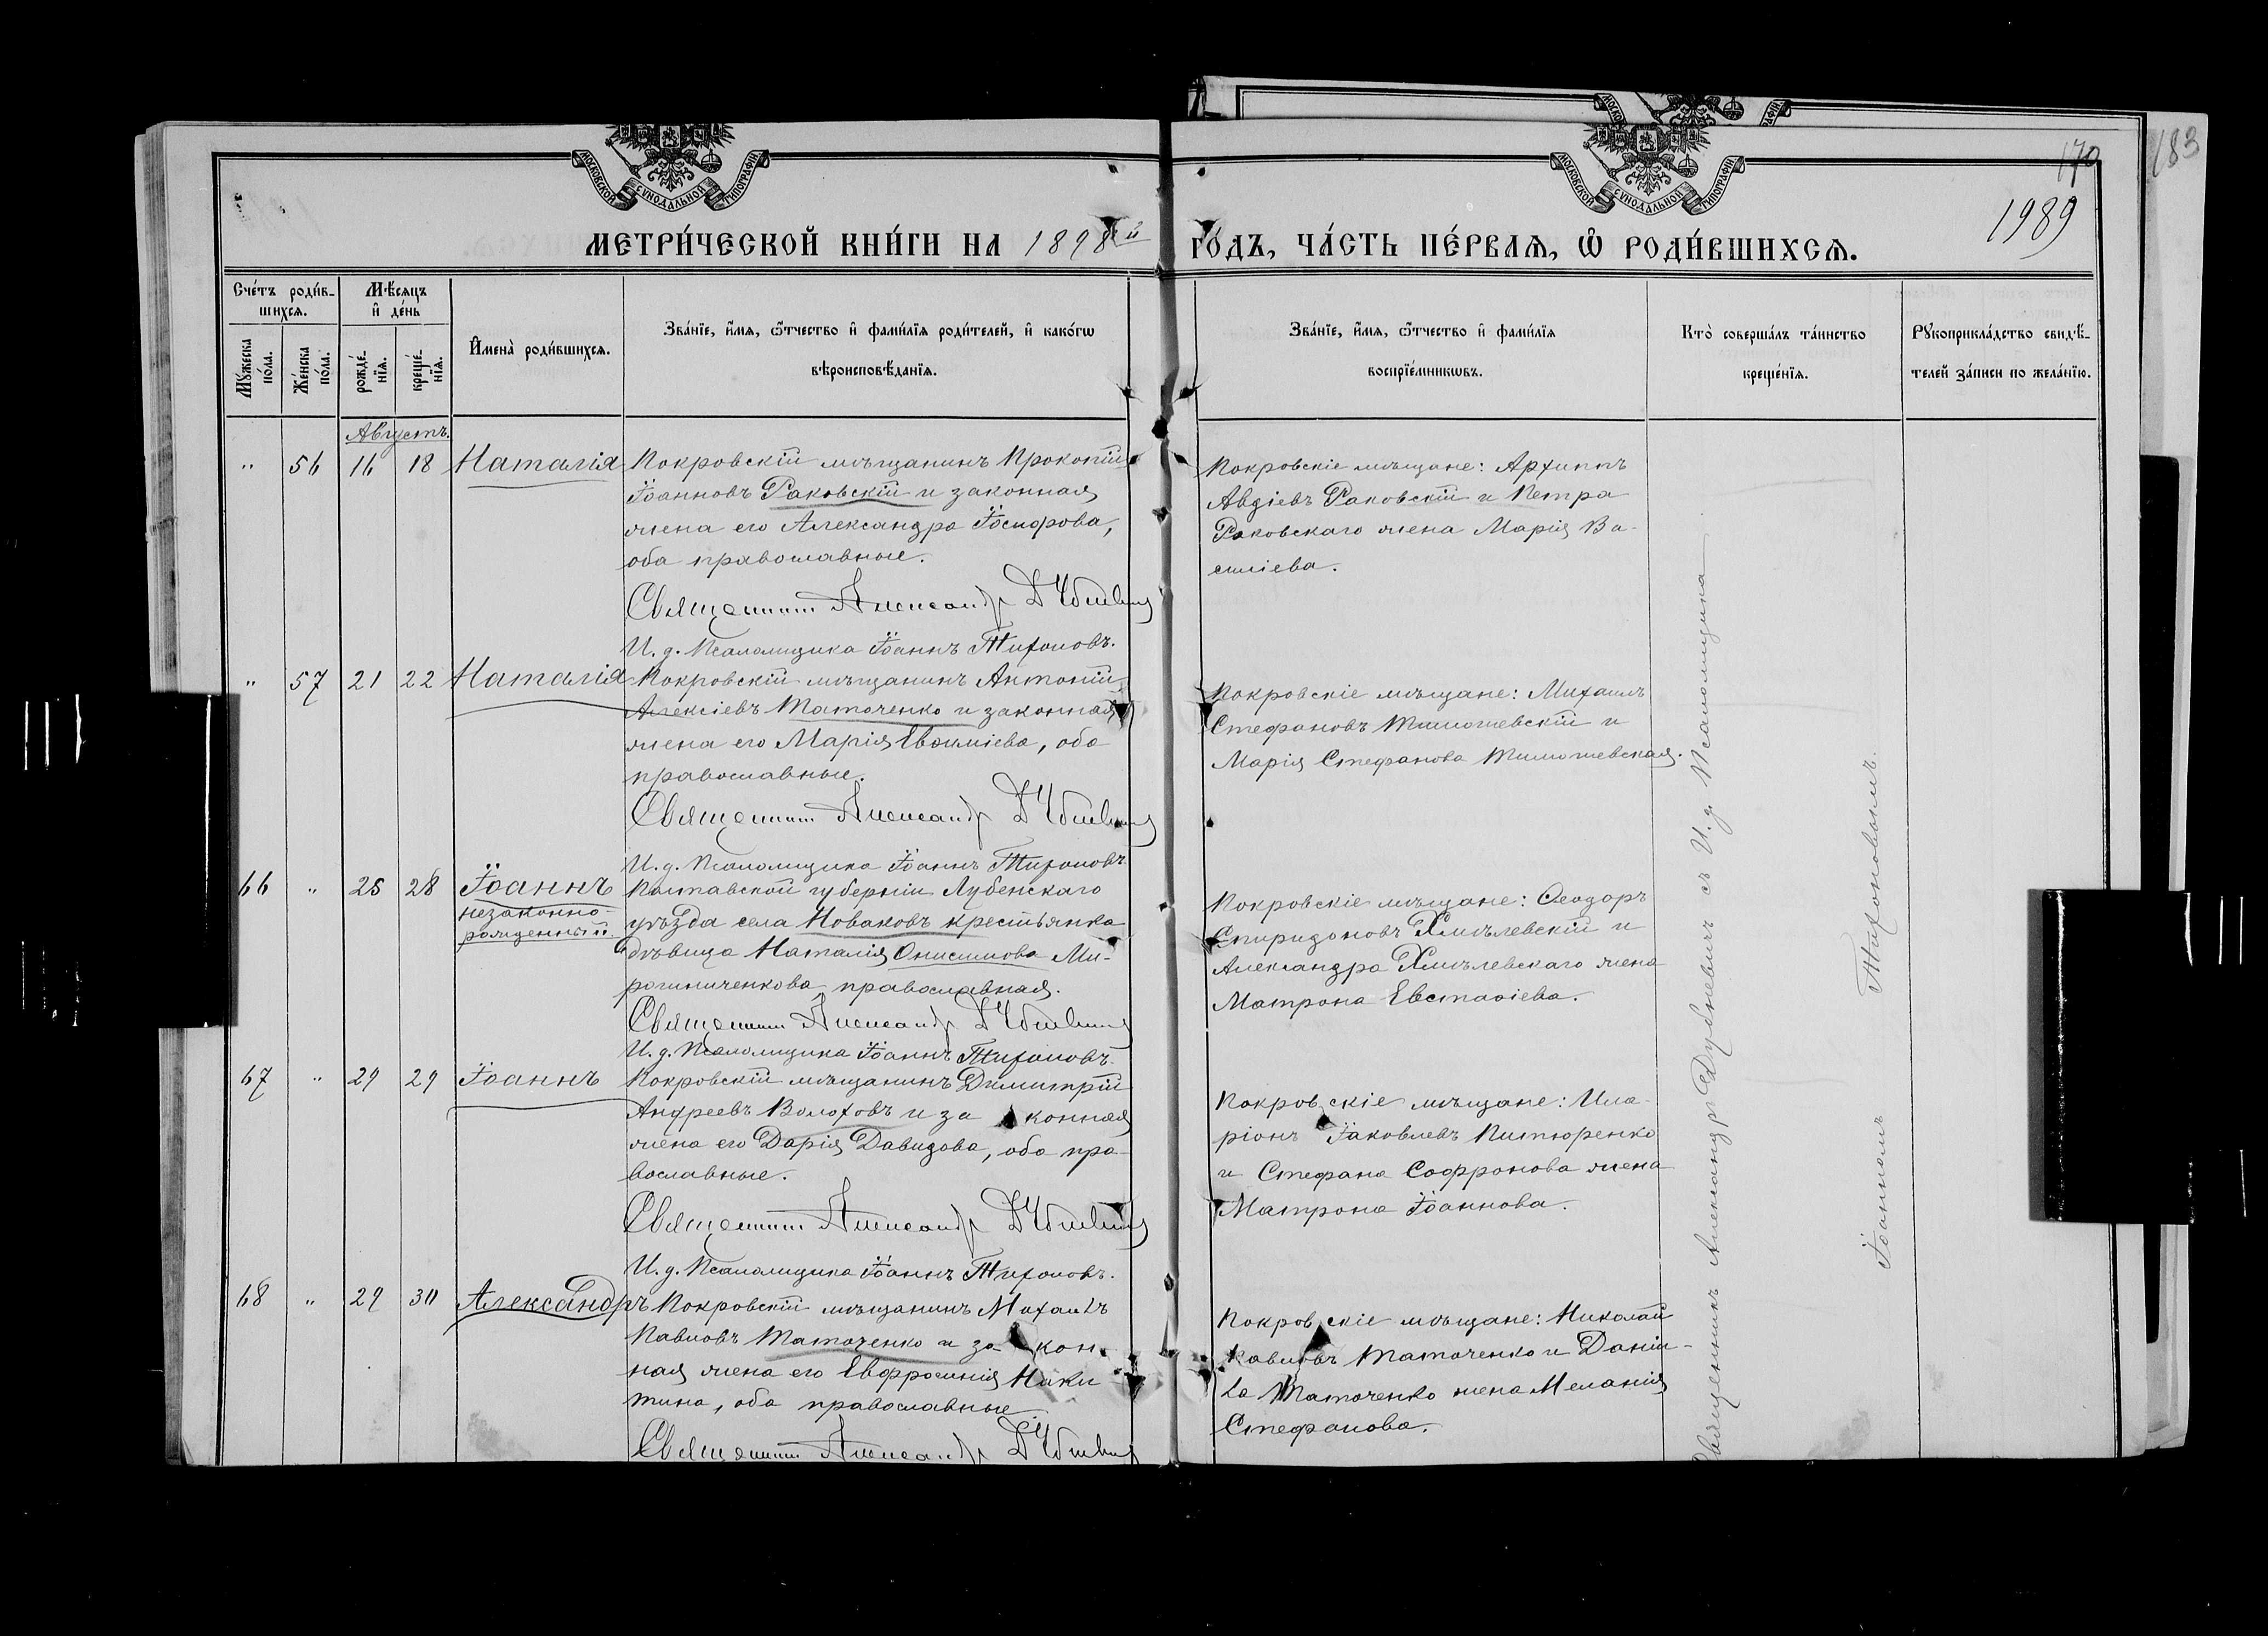 МОСКОВСКОЙ СѴНОДАЛЬНОЙ ТИПОГРАФІИ
МОСКОВСКОЙ СѴНОДАЛЬНОЙ ТИПОГРАФІИ
170
183
1989
МЕТРИ́ЧЕСКОЙ КНИ́ГИ НА 1898й ГО́ДЪ, ЧА́СТЬ ПЕ́РВАЯ, Ѡ РОДИ́ВШИХСѦ.
Сче́тъ роди́в-
шихсѧ.
Мѣ́сяцъ
и҆ де́нь
Мꙋ́жеска
по́ла.
Же́нска
по́ла.
рожде́-
нїѧ.
креще́-
нїѧ.
И҆мена̀ роди́вшихсѧ.
Зва́нїе, и҆́мѧ, ѻ҆́тчество и҆ фами́лїѧ роди́телей, и҆ како́гѡ
вѣроисповѣ́данїѧ.
Зва́нїе, и҆́мѧ, ѻ҆́тчество и҆ фами́лїѧ
воспрїе́мникѡвъ.
Кто̀ соверша́лъ та́инство
креще́нїѧ.
Рꙋкоприкла́дство свидѣ́-
телей за́писи по жела́нїю.
Августъ.
" 56 16 18 Наталія
Покровскій мѣщанинъ Прокопій
Іоанновъ Раковскій и законная
жена его Александра Іосифова,
оба православные.
Священник Александр Дубневич
И. д. Псаломщика Іоаннъ Тихоновъ.
Покровскіе мѣщане: Архиппъ
Авдіевъ Раковскій и Петра
Раковскаго жена Марія Ва-
силіева.
" 57 21 22 Наталія
Покровскій мѣщанинъ Антоній
Алексіевъ Таточенко и законная
жена его Марія Евѳиміева, оба
православные.
Священник Александр Дубневич
И. д. Псаломщика Іоаннъ Тихоновъ.
Покровскіе мѣщане: Михаилъ
Стефановъ Тимошевскій и
Марія Стефанова Тимошевская.
66 " 25 28 Іоаннъ
незаконно-
рожденный
Полтавской губерніи Лубенскаго
уѣзда села Новаковъ крестьянка
дѣвица Наталія Онисимова Ми-
рошниченкова православная.
Священник Александр Дубневич
И. д. Псаломщика Іоаннъ Тихоновъ.
Покровскіе мѣщане: Ѳеодоръ
Спиридоновъ Хмѣлевскій и
Александра Хмѣлевскаго жена
Матрона Евстаѳіева.
67 " 29 29 Іоаннъ
Покровскій мѣщанинъ Димитрій
Андреевъ Волоховъ и законная
жена его Дарія Давидова, оба пра-
вославные.
Священник Александр Дубневич
И. д. Псаломщика Іоаннъ Тихоновъ.
Покровскіе мѣщане: Ила-
ріонъ Іаковлевъ Питюренко
и Стефана Софронова жена
Матрона Іоаннова.
68 " 29 30 Александръ
Покровскій мѣщанинъ Михаилъ
Павловъ Таточенко и закон-
ная жена его Евфросинія Ники-
тина, оба православные.
Священник Александр Дубневич
Покровскіе мѣщане: Николай
Павловъ Таточенко и Даніи-
ла Таточенко жена Меланія
Стефанова.
Священникъ Александръ Дубневичъ съ И. д. Псаломщика
Іоанномъ Тихоновымъ.